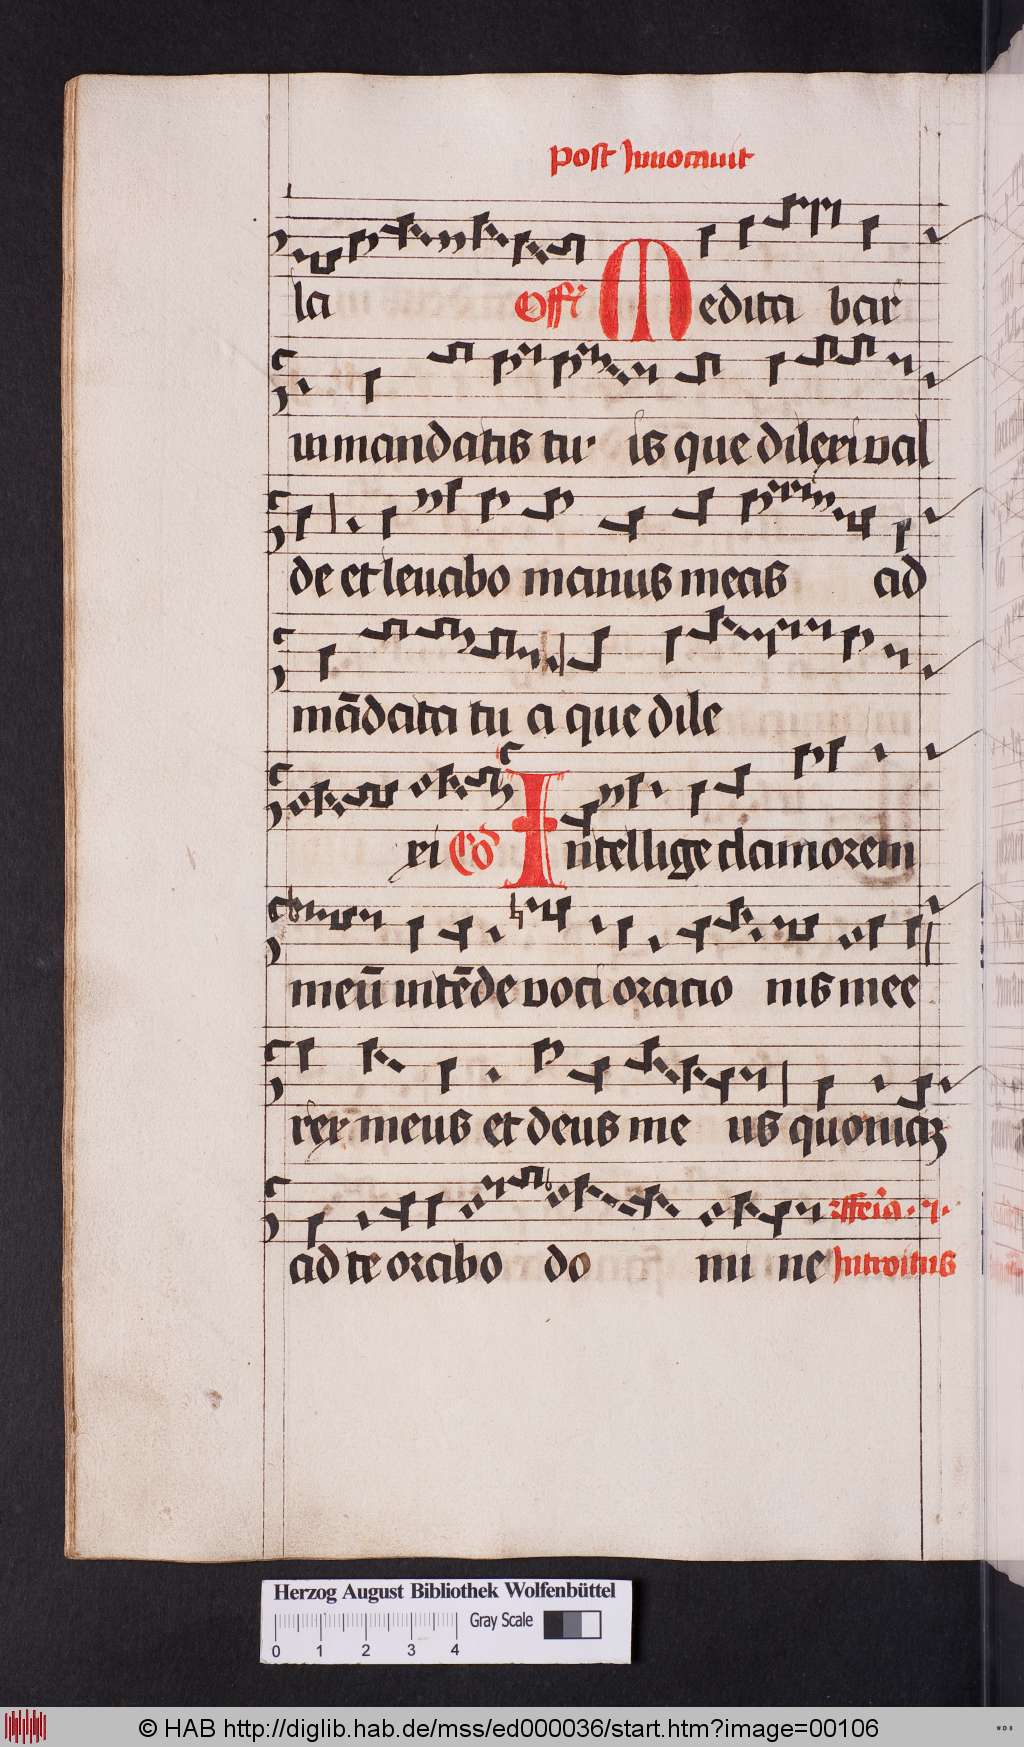 post Inuocauit
la Offi Medita bar
in mandatis tu is que dilexi val
de et leuabo manus meas ad
mādata tu a que dile
xi Co Intellige clamorem
meū intēde voci oracio nis mee
rex meus et deus me us quoniaʒ
ad te orabo do mi ne Introitus
Herzog August Bibliothek Wolfenbüttel
Gray Scale
0 1 2 3 4
© HAB http://diglib.hab.de/mss/ed000036/start.htm?image=00106